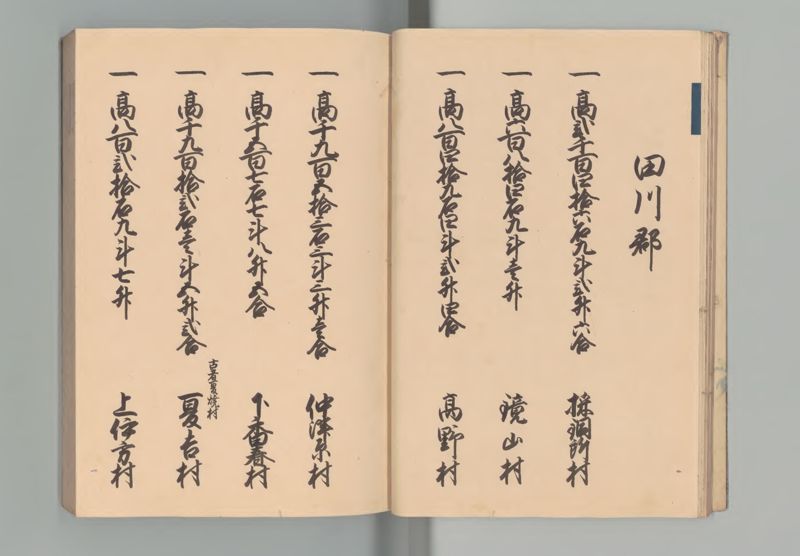 田川郡
一 高弐千百四拾六石九斗弐升六合 採銅所村
一 高六百八拾四石九斗壱升 鏡山村
一 高八百四拾九石四斗弐升四合 高野村
一 高千九百五拾三石三斗三升壱合 仲津原村
一 高千五百七石七斗八升五合 下香春村
古者夏焼村
一 高千九百拾弐石壱斗五升弐合 夏吉村
一 高八百弐拾石九斗七升 上伊方村